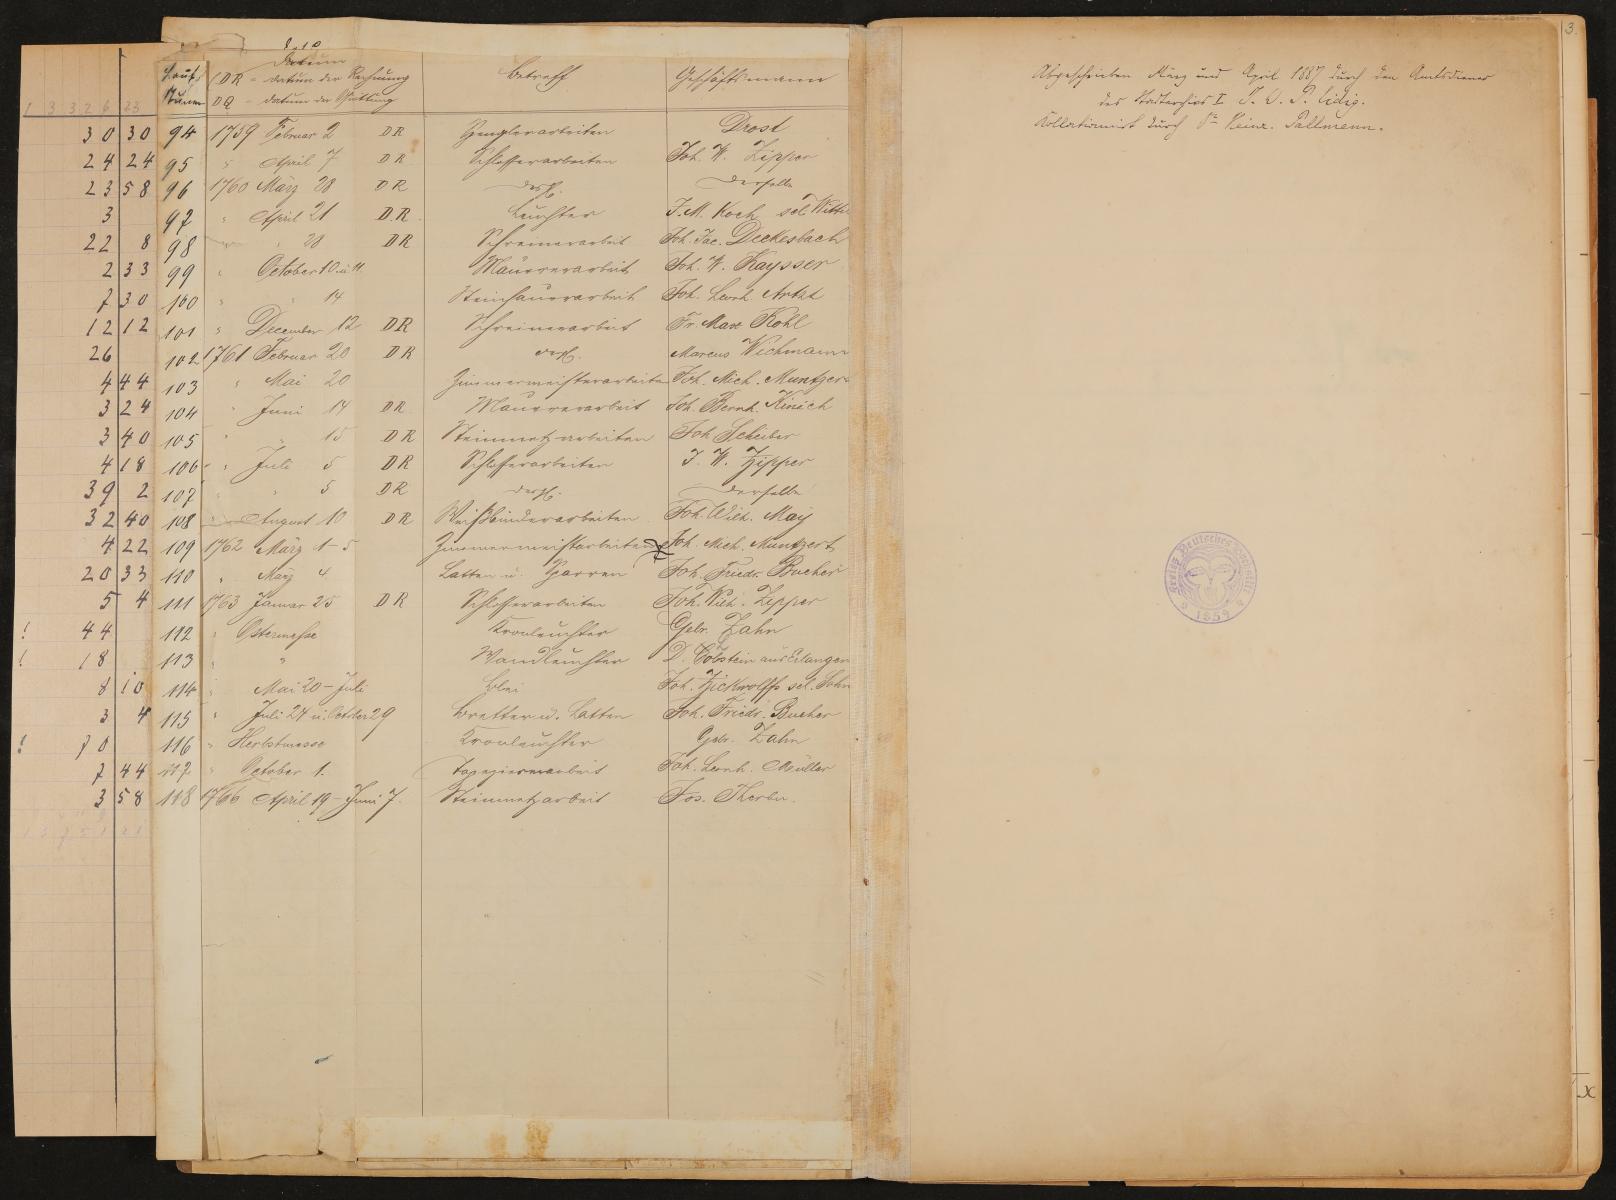 Datum
Laufd. Num̄ (DR = Datum der Rechnung Betreff Geschäftsmann
DQ = Datum der Quittung
1 3 3 2 6 23
30 30 94 1759 Februar 2 DR Spenglerarbeiten Drost
24 24 95 " April 7 DR Schlosserarbeiten Joh. W. Zipper
23 58 96 1760 März 28 DR desgl. derselbe
3 97 " April 21 DR. Leuchter J. M. Koch sel. Witt
22 8 98 " " 28 DR Schreinerarbeit Joh. Jac. Deckesbach
2 33 99 " October 10 u. 11 Maurerarbeit Joh. W. Kaysser
7 30 100 " " 14 Steinhauerarbeit Joh. Leonh. Artzt
12 12 101 " December 12 DR Schreinerarbeit Fr. Max Kohl
26 102 1761 Februar 20 DR desgl. Marcus Wichmann
4 44 103 " Mai 20 Zimmermeisterarbeiten Joh. Mich. Muntzer
3 24 104 " Juni 14 DR Maurerarbeit Joh. Bernh. Kinich
3 40 105 " " 15 DR Steinmetzarbeiten Joh Scheiber
4 18 106 " Juli 5 DR Schlosserarbeiten J. W. Zipper
39 2 107 " " 5 DR desgl. derselbe
32 40 108 " August 10 DR Weißbinderarbeiten Joh. Wilh. May
4 22 109 1762 März 1-5 Zimmermeisterarbeiten Joh. Mich. Muntzert
20 33 110 " März 4 Latten u. Sparren Joh. Friedr. Bucher
5 4 111 1763 Januar 25 DR Schlosserarbeiten Joh. Wilh. Zipper
! 44 112 " Ostermesse Kronleuchter Gebr. Zahn
! 18 113 " " Wandleuchter D. Cobstein aus Erlangen
8 10 114 " Mai 20 - Juli Blei Joh. Zickwolffs sel. Sohn
3 4 115 " Juli 24 u. October 29 Bretter u. Latten Joh. Friedr. Bucher
! 70 116 " Herbstmesse Kronleuchter Gebr. Zahn
7 44 117 " October 1. Tapezierarbeit Joh. Leonh. Müller
3 58 118 1766 April 19 - Juni 7. Steinmetzarbeit Jos. Therbu.
3.
Abgeschrieben März und April 1887 durch den Amtsdiener
des Stadtarchivs I J. V. P. Eidig.
Kollationirt durch Dr. Heinr. Pallmann.
Freies Deutsches Hochstift
1859
x